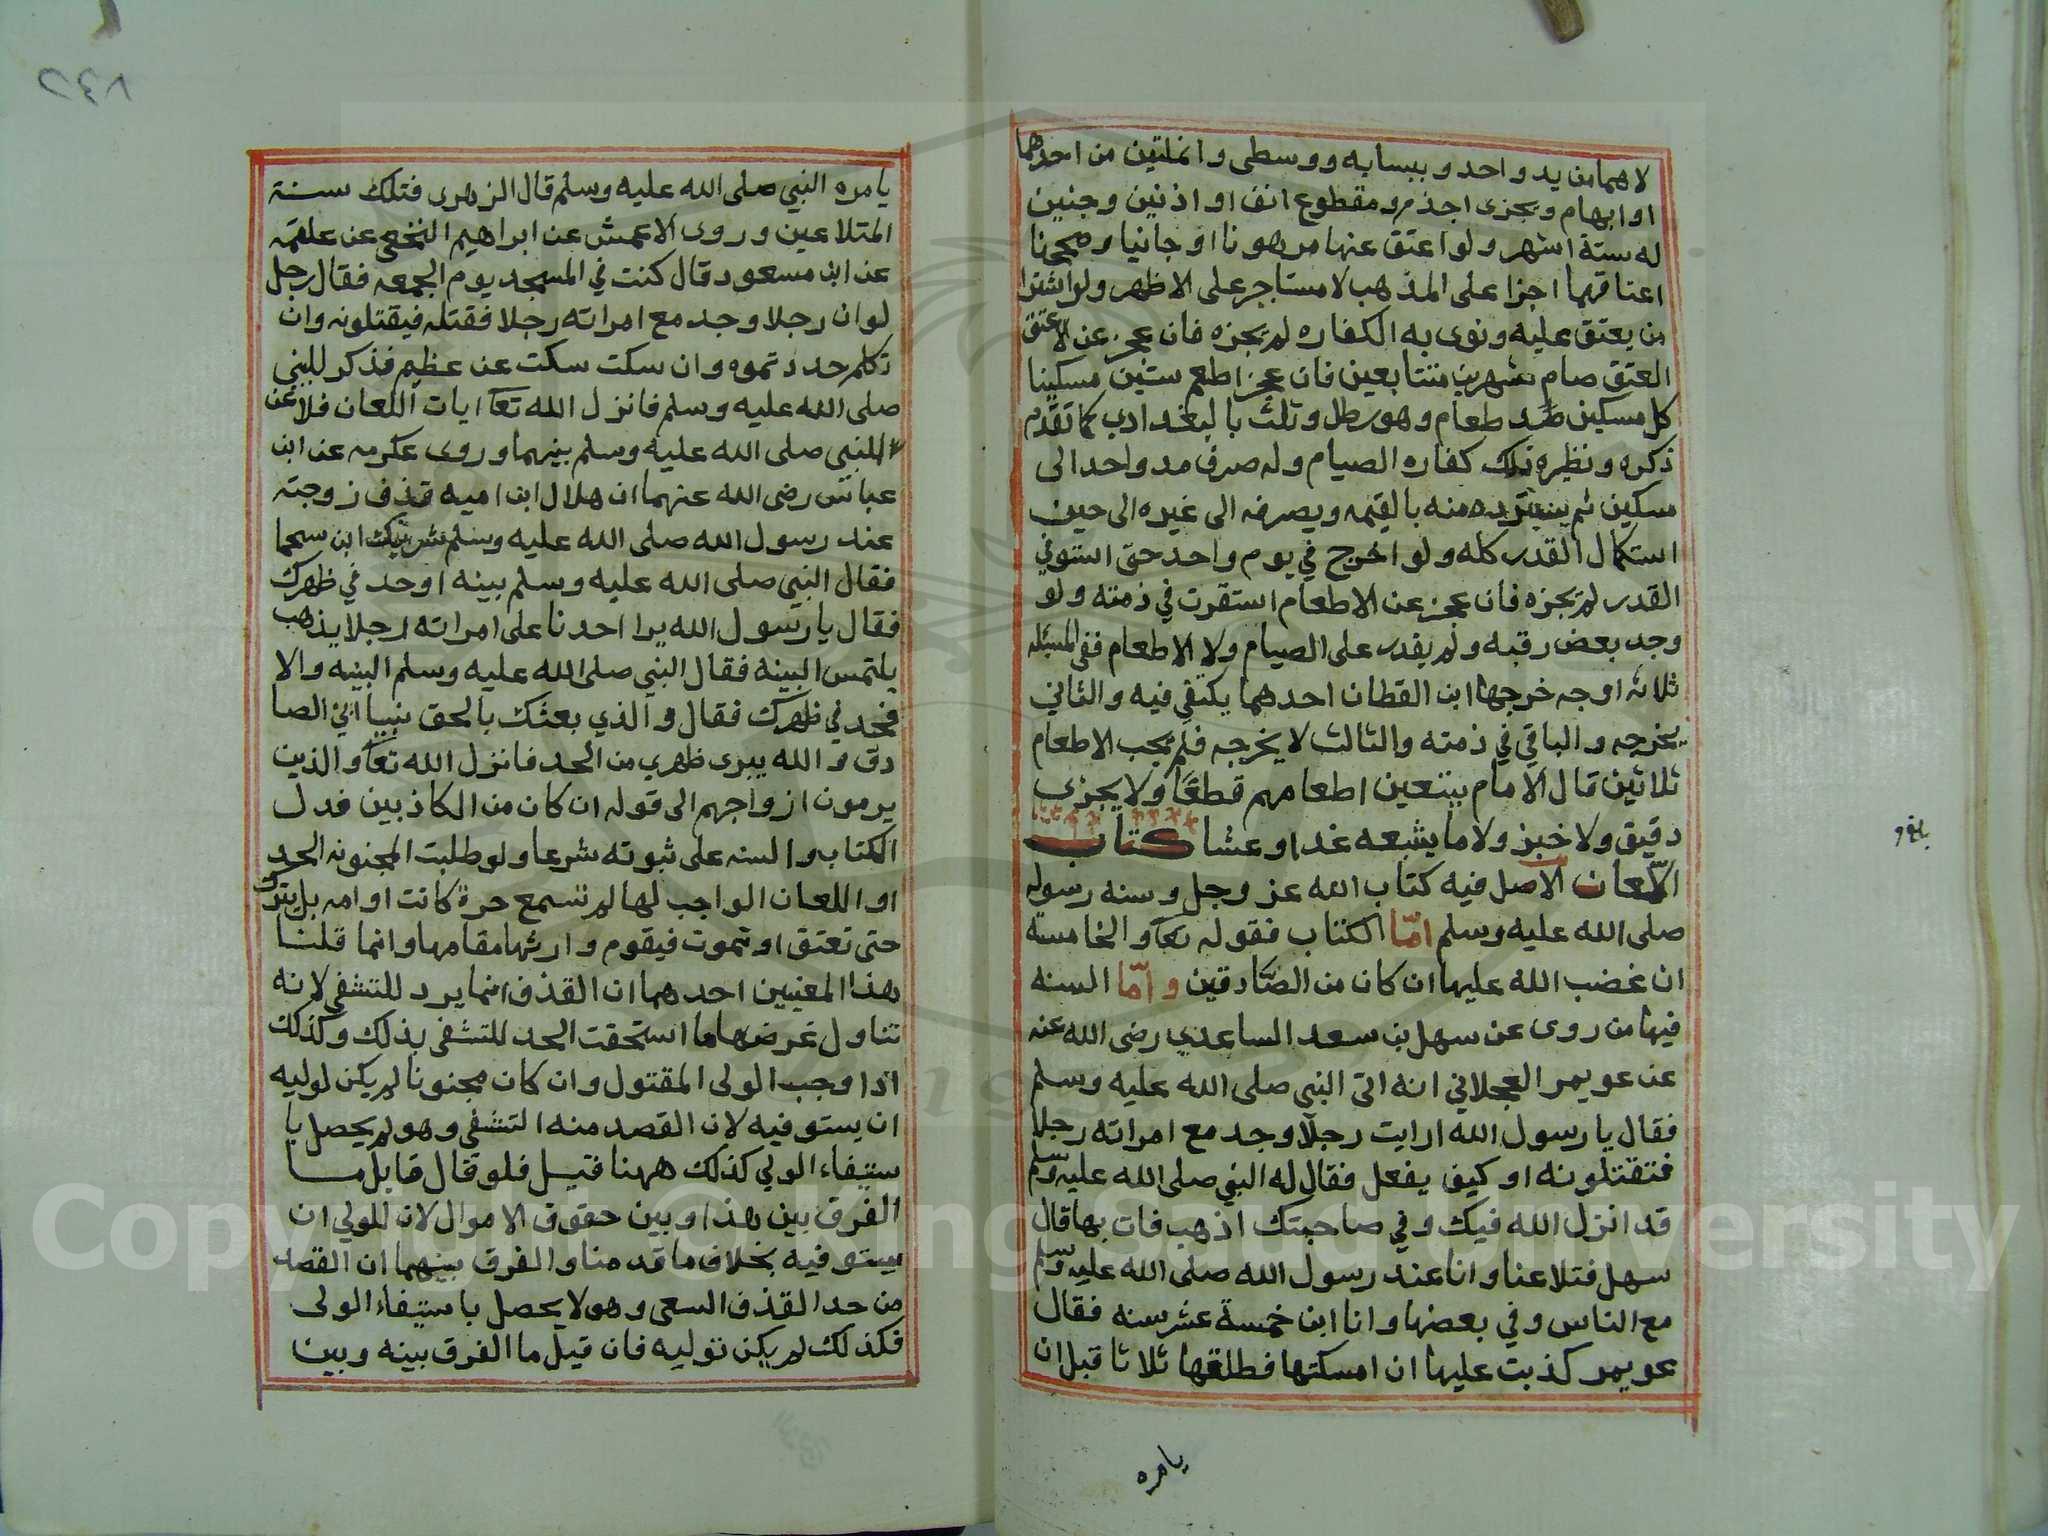 لاهمامن يد واحد وببسابه ووسطى وانملتين من احدهما
او ابهام ويجزى اجذم ومقطوع انف او اذنين وجنين
له ستة اشهر ولو اعتق عنها مرهونا او جانيا وصححنا
اعتاقهما اجزا على المذهب لا مستاجر على الاظهر ولو اشترا
من يعتق عليه ونوى به الكفاره لم يجزه فان عجز عن الاعتق
العتق صام شهرين متتابعين فان عجز اطعم ستين مسكينا
كل مسكين مد طعام وهو رطل وثلث بالبغدادي كما تقدم
ذكره ونظيره تلك كفاره الصيام وله صرف مد واحد الى
مسكين ثم يشتريه منه بالقيمه ويصرفه الى غيره الى حين
استكمال القدر كله ولو اخرج في يوم واحد حتى استوفي
القدر لم يجزه فان عجز عن الاطعام استقرت في ذمته ولو
وجد بعض رقبه ولم يقدر على الصيام ولا الاطعام ففي المسئله
ثلاثه اوجه خرجها ابن القطان احدهما يكتفي فيه والثاني
يخرجه والباقي في ذمته والثالث لا يخرجه فلم يجب الاطعام
ثلاثين قال الامام يتعين اطعامهم قطعا ولا يجزى
دقيق ولا خبز ولا ما يشبعه غدا او عشا كتاب
اللعان الاصل فيه كتاب الله عز وجل وسنه رسوله
صلى الله عليه وسلم امّا الكتاب فقوله تعا والخامسة
ان غضب الله عليها ان كان من الصّادقين وامّا السنه
فيها من روى عن سهل بن سعد الساعدي رضى الله عنه
عن عويمر العجلاني انه اتى النبي صلى الله عليه وسلم
فقال يا رسول الله ارايت رجلا وجد مع امراته رجلا
فتقتلونه او كيف يفعل فقال له النبي صلى الله عليه وسلم
قد انزل الله فيك وفي صاحبتك اذهب فات بها قال
سهل فتلاعنا وانا عند رسول الله صلى الله عليه وسلم
مع الناس وفي بعضها وانا ابن خمسة عشر سنه فقال
عويمر كذبت عليها ان امسكتها فطلقها ثلاثا قبل ان
يامره
يامره النبي صلى الله عليه وسلم قال الزهرى فتلك سنة
المتلاعين وروى الاعمش عن ابراهيم النخعى عن علقمه
عن ابن مسعود قال كنت في المسجد يوم الجمعه فقال رجل
لو ان رجلا وجد مع امراته رجلا فقتله فيقتلونه وان
تكلم حددتموه وان سكت سكت عن عظيم فذكر للنبي
صلى الله عليه وسلم فانزل الله تعا ايات اللعان فلاعن
النبي صلى الله عليه وسلم بينهما وروى عكرمه عن ابن
عباس رضى الله عنهما ان هلال ابن اميه قذف زوجته
عند رسول الله صلى الله عليه وسلم بشريك ابن سحما
فقال النبي صلى الله عليه وسلم بينه او حد في ظهرك
فقال يا رسول الله يرا احدنا على امراته رجلا يذهب
يلتمس البينه فقال النبي صلى الله عليه وسلم البينه والا
فحد في ظهرك فقال والذي بعثك بالحق نبيا اني الصا
دق والله يبرى ظهري من الحد فانزل الله تعا والذين
يرمون ازواجهم الى قوله ان كان من الكاذبين فدل
الكتاب والسنه على ثبوته شرعا ولو طلبت المجنونه الحد
او اللعان الواجب لها لم تسمع حرة كانت او امه بل يترك
حتى تعتق او تموت فيقوم وارثها مقامها وانما قلنا
هذا المعنيين احدهما ان القذف انما يرد للتشفي لانه
تناول عرضها ما استحقت الحد للتشفي بذلك وكذلك
اذا وجب الولى المقتول وان كان مجنونا لم يكن لوليه
ان يستوفيه لان القصد منه التشفي وهو لم يحصل با
ستيفاء الولي كذلك ههنا قيل فلو قال قايل ما
الفرق بين هذا وبين حقوق الاموال لان للولي ان
يستوفيه بخلاف ما قدمنا والفرق بينهما ان القصد
من حد القذف السعى وهو لا يحصل باستيفاء الولى
فكذلك لم يكن توليه فان قيل ما الفرق بينه وبين
Copyright © King Saud University